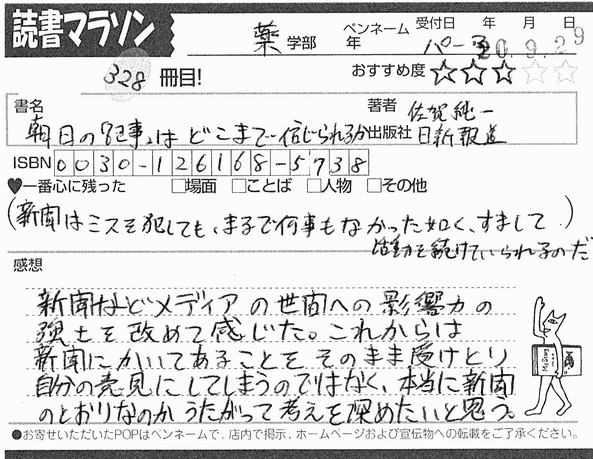 読書マラソン
薬 学部 年 ペンネーム パーマ 受付日 年 月 日
20.9.29
328 冊目! おすすめ度 ☆☆☆☆☆
書名 朝日の「記事」はどこまで信じられるか
著者 佐賀純一
出版社 日新報道
ISBN 0030-126168-5738
♥一番心に残った □場面 □ことば □人物 □その他
(新聞はミスを犯しても、まるで何事もなかった如く、すまして
活動を続けていられるのだ)
感想
新聞などメディアの世間への影響力の
強さを改めて感じた。これからは
新聞にかいてあることをそのまま受けとり
自分の意見にしてしまうのではなく、本当に新聞
のとおりなのかうたがって考えを深めたいと思う。
●お寄せいただいたPOPはペンネームで、店内で掲示、ホームページおよび宣伝物への転載をご了承ください。